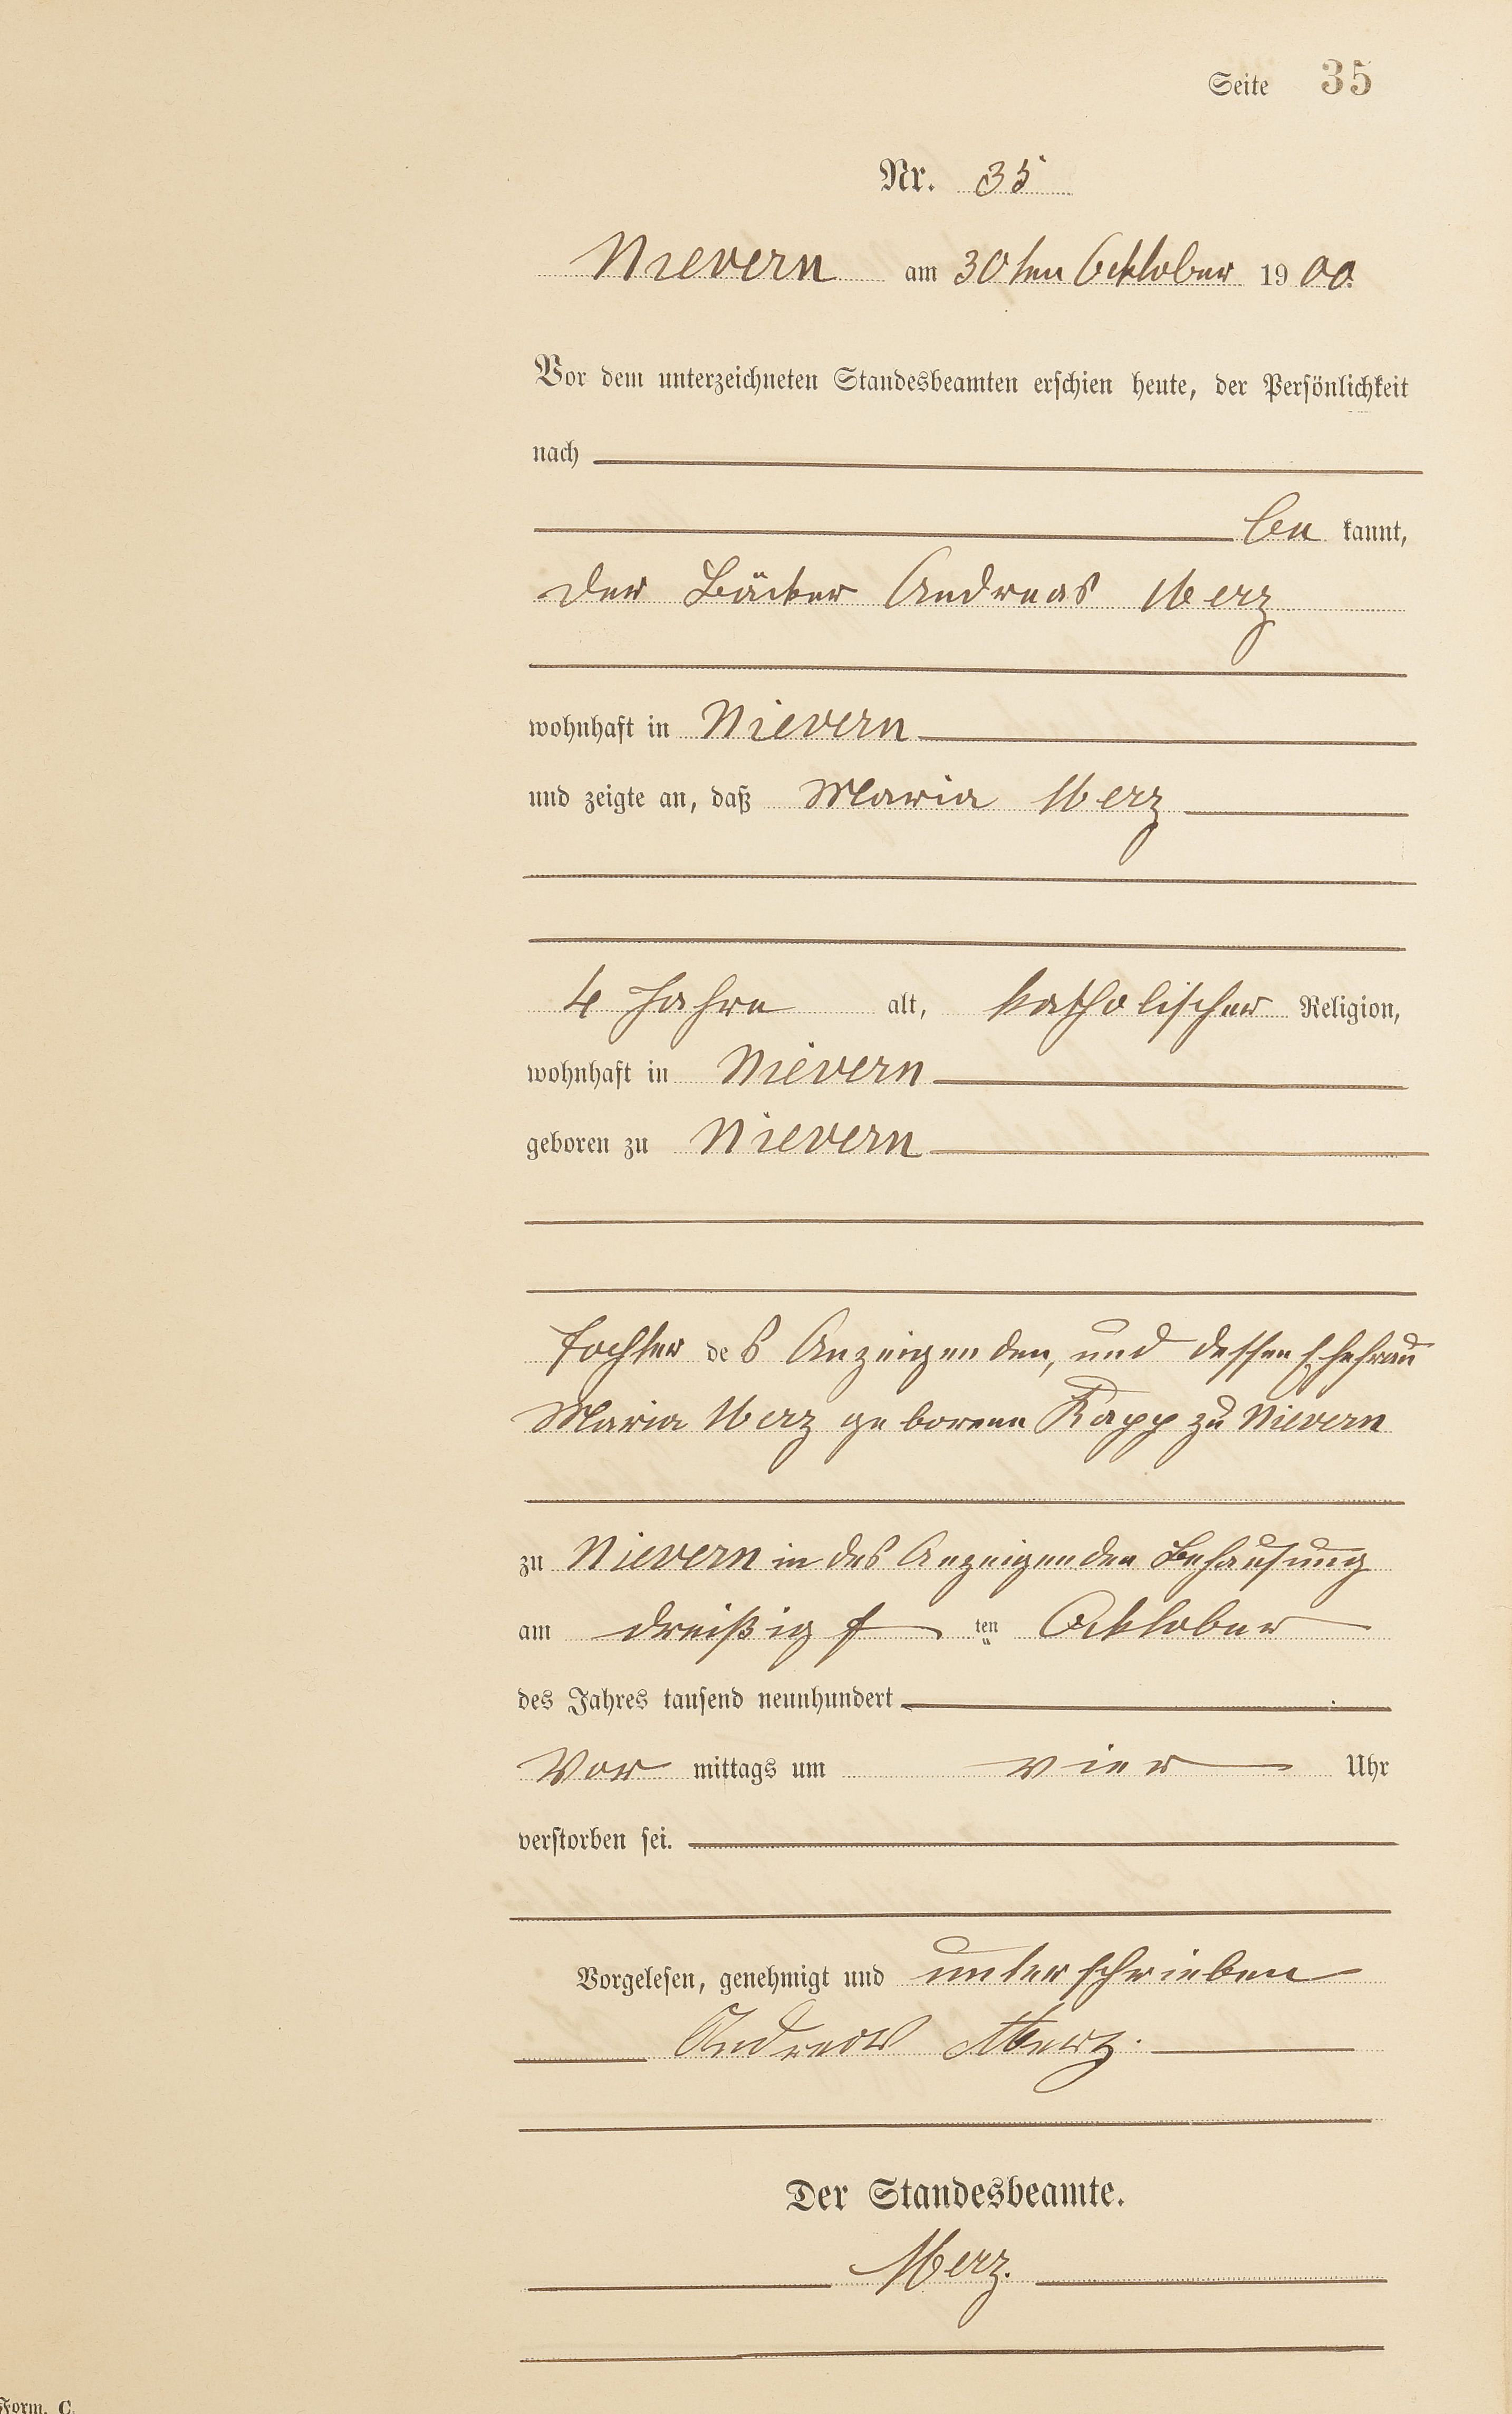 Seite 35
Nr. 35
Nievern am 30ten Ocktober 1900.
Vor dem unterzeichneten Standesbeamten erschien heute, der Persönlichkeit
nach
be kannt,
der Bäcker Andreas Merz
wohnhaft in Nievern
und zeigte an, daß Maria Merz
4 Jahre alt, katholischer Religion,
wohnhaft in Nievern
geboren zu Nievern
Tochter des Anzeigenden, und dessen Ehefrau
Maria Merz geborene Kapp zu Nievern
zu Nievern in des Anzeigenden Behausung
am dreißigs ten Ocktober
des Jahres tausend neunhundert
Vor mittags um vier Uhr
verstorben sei.
Vorgelesen, genehmigt und unterschrieben
Andreas Merz.
Der Standesbeamte.
Merz.
Form. C.